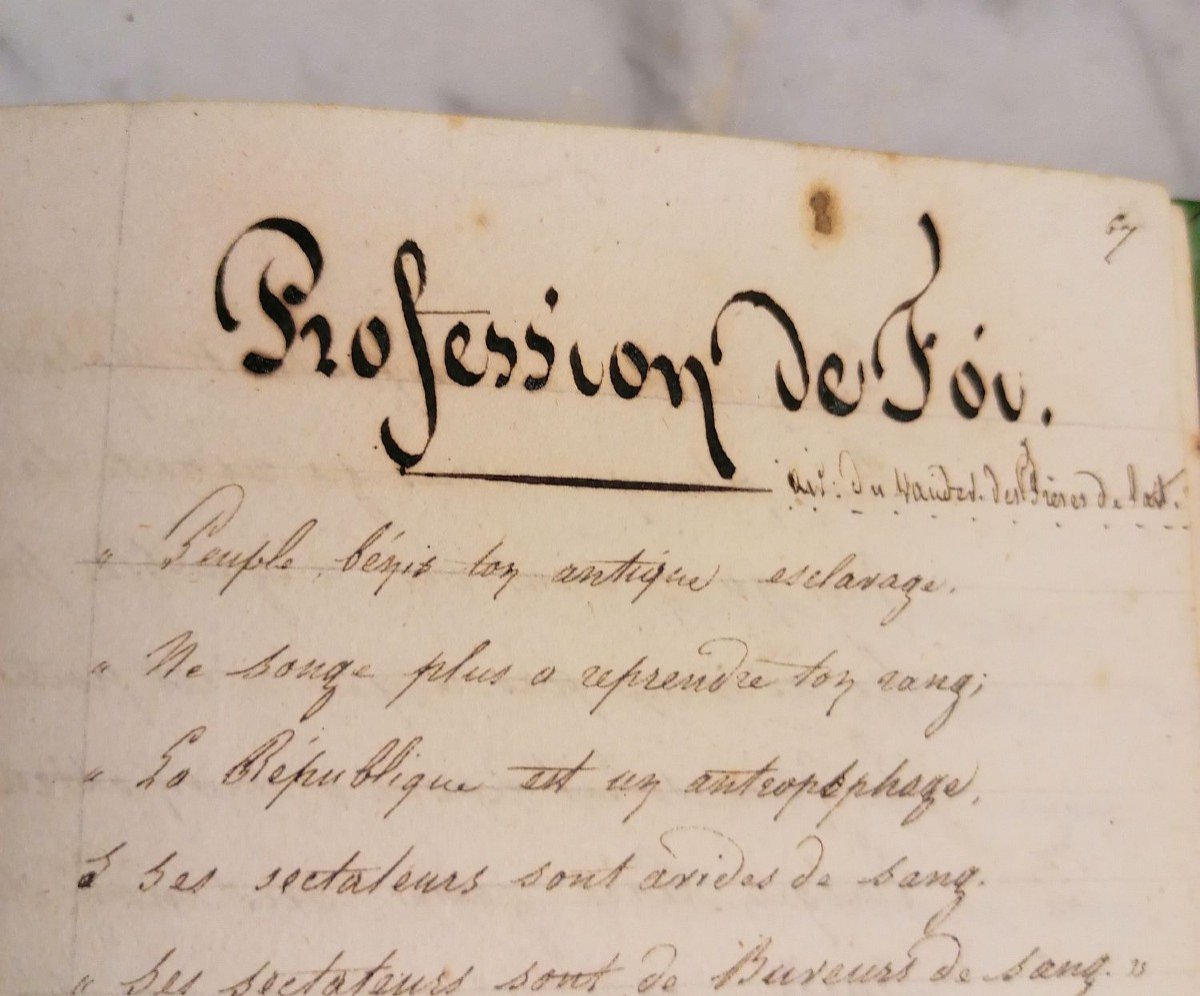 67
Profession de Foi.
air: du Vaudev. des Frères de lait.
" Peuple, bénis ton antique esclavage.
" Ne songe plus a reprendre ton rang;
" La République est un antropophage,
" Ses sectateurs sont avides de sang.
" Ses sectateurs sont de Buveurs de sang. "